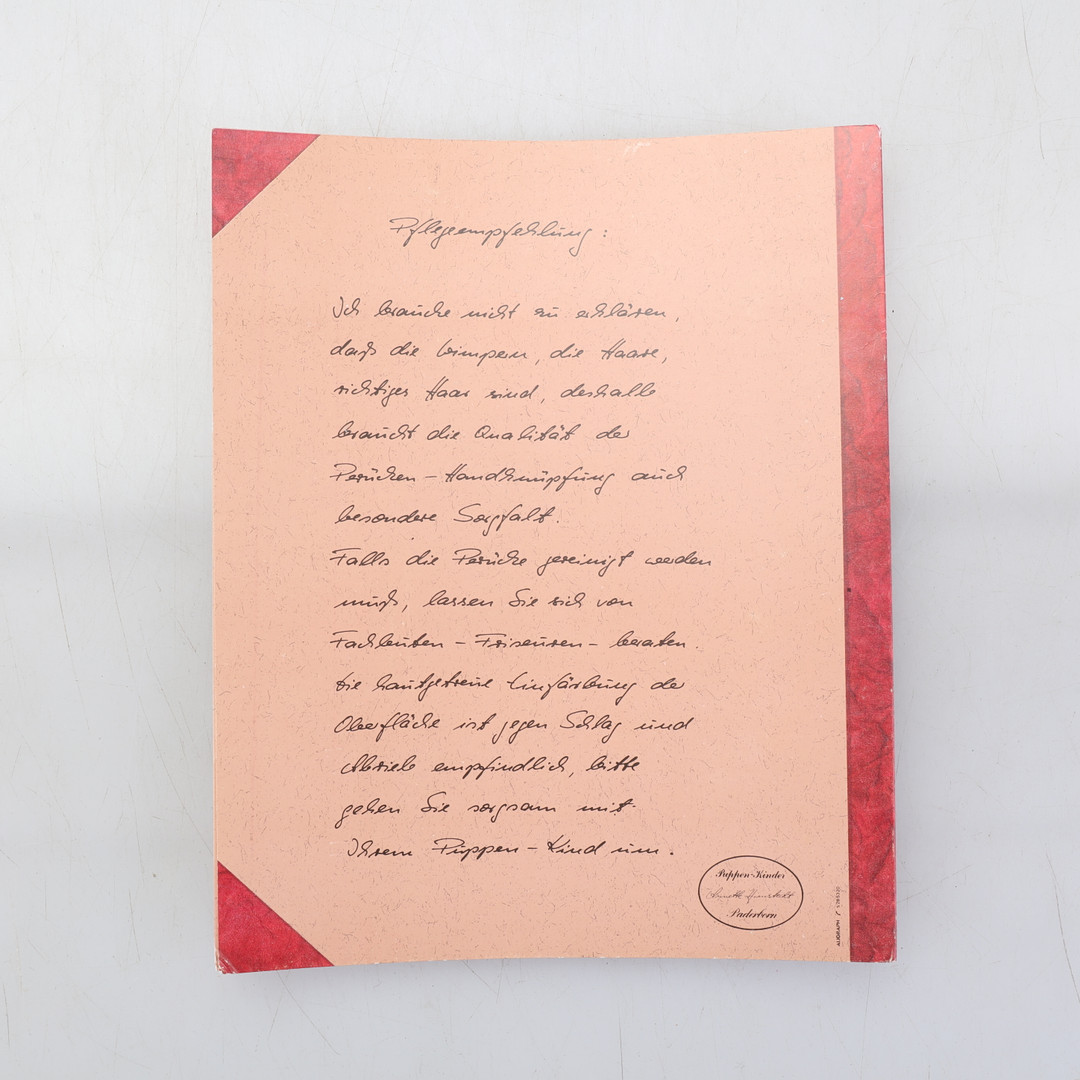 Pflegeempfehlung:
Ich brauche nicht zu erklären,
daß die Wimpern, die Haare,
richtiges Haar sind, deshalb
braucht die Qualität der
Perücken-Handknüpfung auch
besondere Sorgfalt.
Falls die Perücke gereinigt werden
muß, lassen Sie sich von
Fachleuten - Friseuren - beraten.
Die hautgetreue Einfärbung der
Oberfläche ist gegen Schlag und
Abrieb empfindlich, bitte
gehen Sie sorgsam mit
Ihrem Puppen-Kind um.
Puppen-Kinder
Annette Himstedt
Paderborn